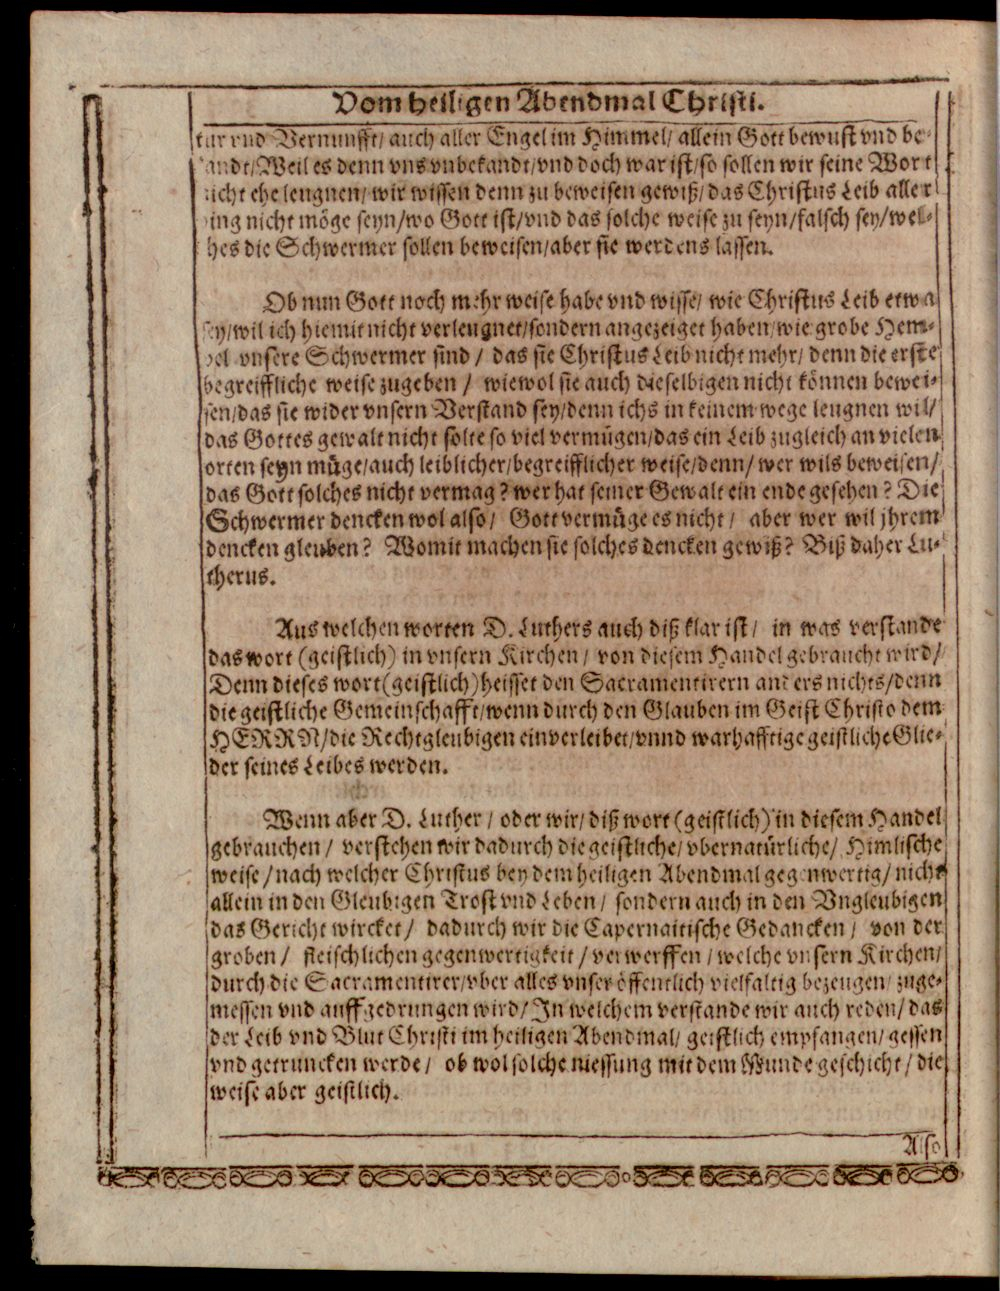 Vom heiligen Abendmal Christi.
tur vnd Vernunfft/ auch aller Engel im Himmel/ allein Gott bewust vnd be-
andt/ Weil es denn vns vnbekandt/ vnd doch war ist/ so sollen wir seine Wort
icht ehe leugnen/ wir wissen denn zu beweisen gewiß/ das Christus Leib aller
ing nicht möge seyn/ wo Gott ist/ vnd das solche weise zu seyn/ falsch sey/ wel-
hes die Schwermer sollen beweisen/ aber sie werdens lassen.
Ob nun Gott noch mehr weise habe vnd wisse/ wie Christus Leib etwa
ey/ wil ich hiemit nicht verleugnet/ sondern angezeiget haben/ wie grobe Hem-
pel vnsere Schwermer sind/ das sie Christus Leib nicht mehr/ denn die erste
begreiffliche weise zugeben/ wiewol sie auch dieselbigen nicht können bewei-
sen/ das sie wider vnsern Verstand sey/ denn ichs in keinem wege leugnen wil/
das Gottes gewalt nicht solte so viel vermügen/ das ein Leib zugleich an vielen
orten seyn müge/ auch leiblicher/ begreifflicher weise/ denn/ wer wils beweisen/
das Gott solches nicht vermag? wer hat seiner Gewalt ein ende gesehen? Die
Schwermer dencken wol also/ Gott vermüge es nicht/ aber wer wil jhrem
dencken gleuben? Womit machen sie solches dencken gewiß? Biß daher Lu-
therus.
Aus welchen worten D. Luthers auch diß klar ist/ in was verstande
das wort (geistlich) in vnsern Kirchen/ von diesem Handel gebraucht wird/
Denn dieses wort (geistlich) heisset den Sacramentirern anders nichts/ denn
die geistliche Gemeinschafft/ wenn durch den Glauben im Geist Christo dem
HERRN/ die Rechtgleubigen einverleibet/ vnnd warhafftige geistliche Glie-
der seines Leibes werden.
Wenn aber D. Luther/ oder wir/ diß wort (geistlich) in diesem Handel
gebrauchen/ verstehen wir dadurch die geistliche/ vbernatürliche/ Himlische
weise/ nach welcher Christus bey dem heiligen Abendmal gegenwertig/ nicht
allein in den Gleubigen Trost vnd Leben/ sondern auch in den Vngleubigen
das Gericht wircket/ dadurch wir die Capernaitische Gedancken/ von der
groben/ fleischlichen gegenwertigkeit/ verwerffen/ welche vnsern Kirchen/
durch die Sacramentirer/ vber alles vnser öffentlich vielfaltig bezeugen/ zuge-
messen vnd auffgedrungen wird/ In welchem verstande wir auch reden/ das
der Leib vnd Blut Christi im heiligen Abendmal/ geistlich empfangen/ gessen
vnd getruncken werde/ ob wol solche niessung mit dem Munde geschicht/ die
weise aber geistlich.
Also